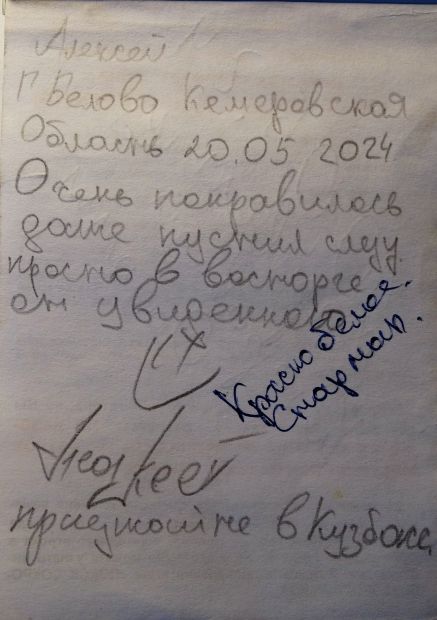 Алексей
Г Белово Кемеровская
Область 20.05 2024
Очень понравилось
даже пустил слезу
просто в восторге
от увиденного
Красно белое.
Стар мап.
приезжайте в Кузбасс